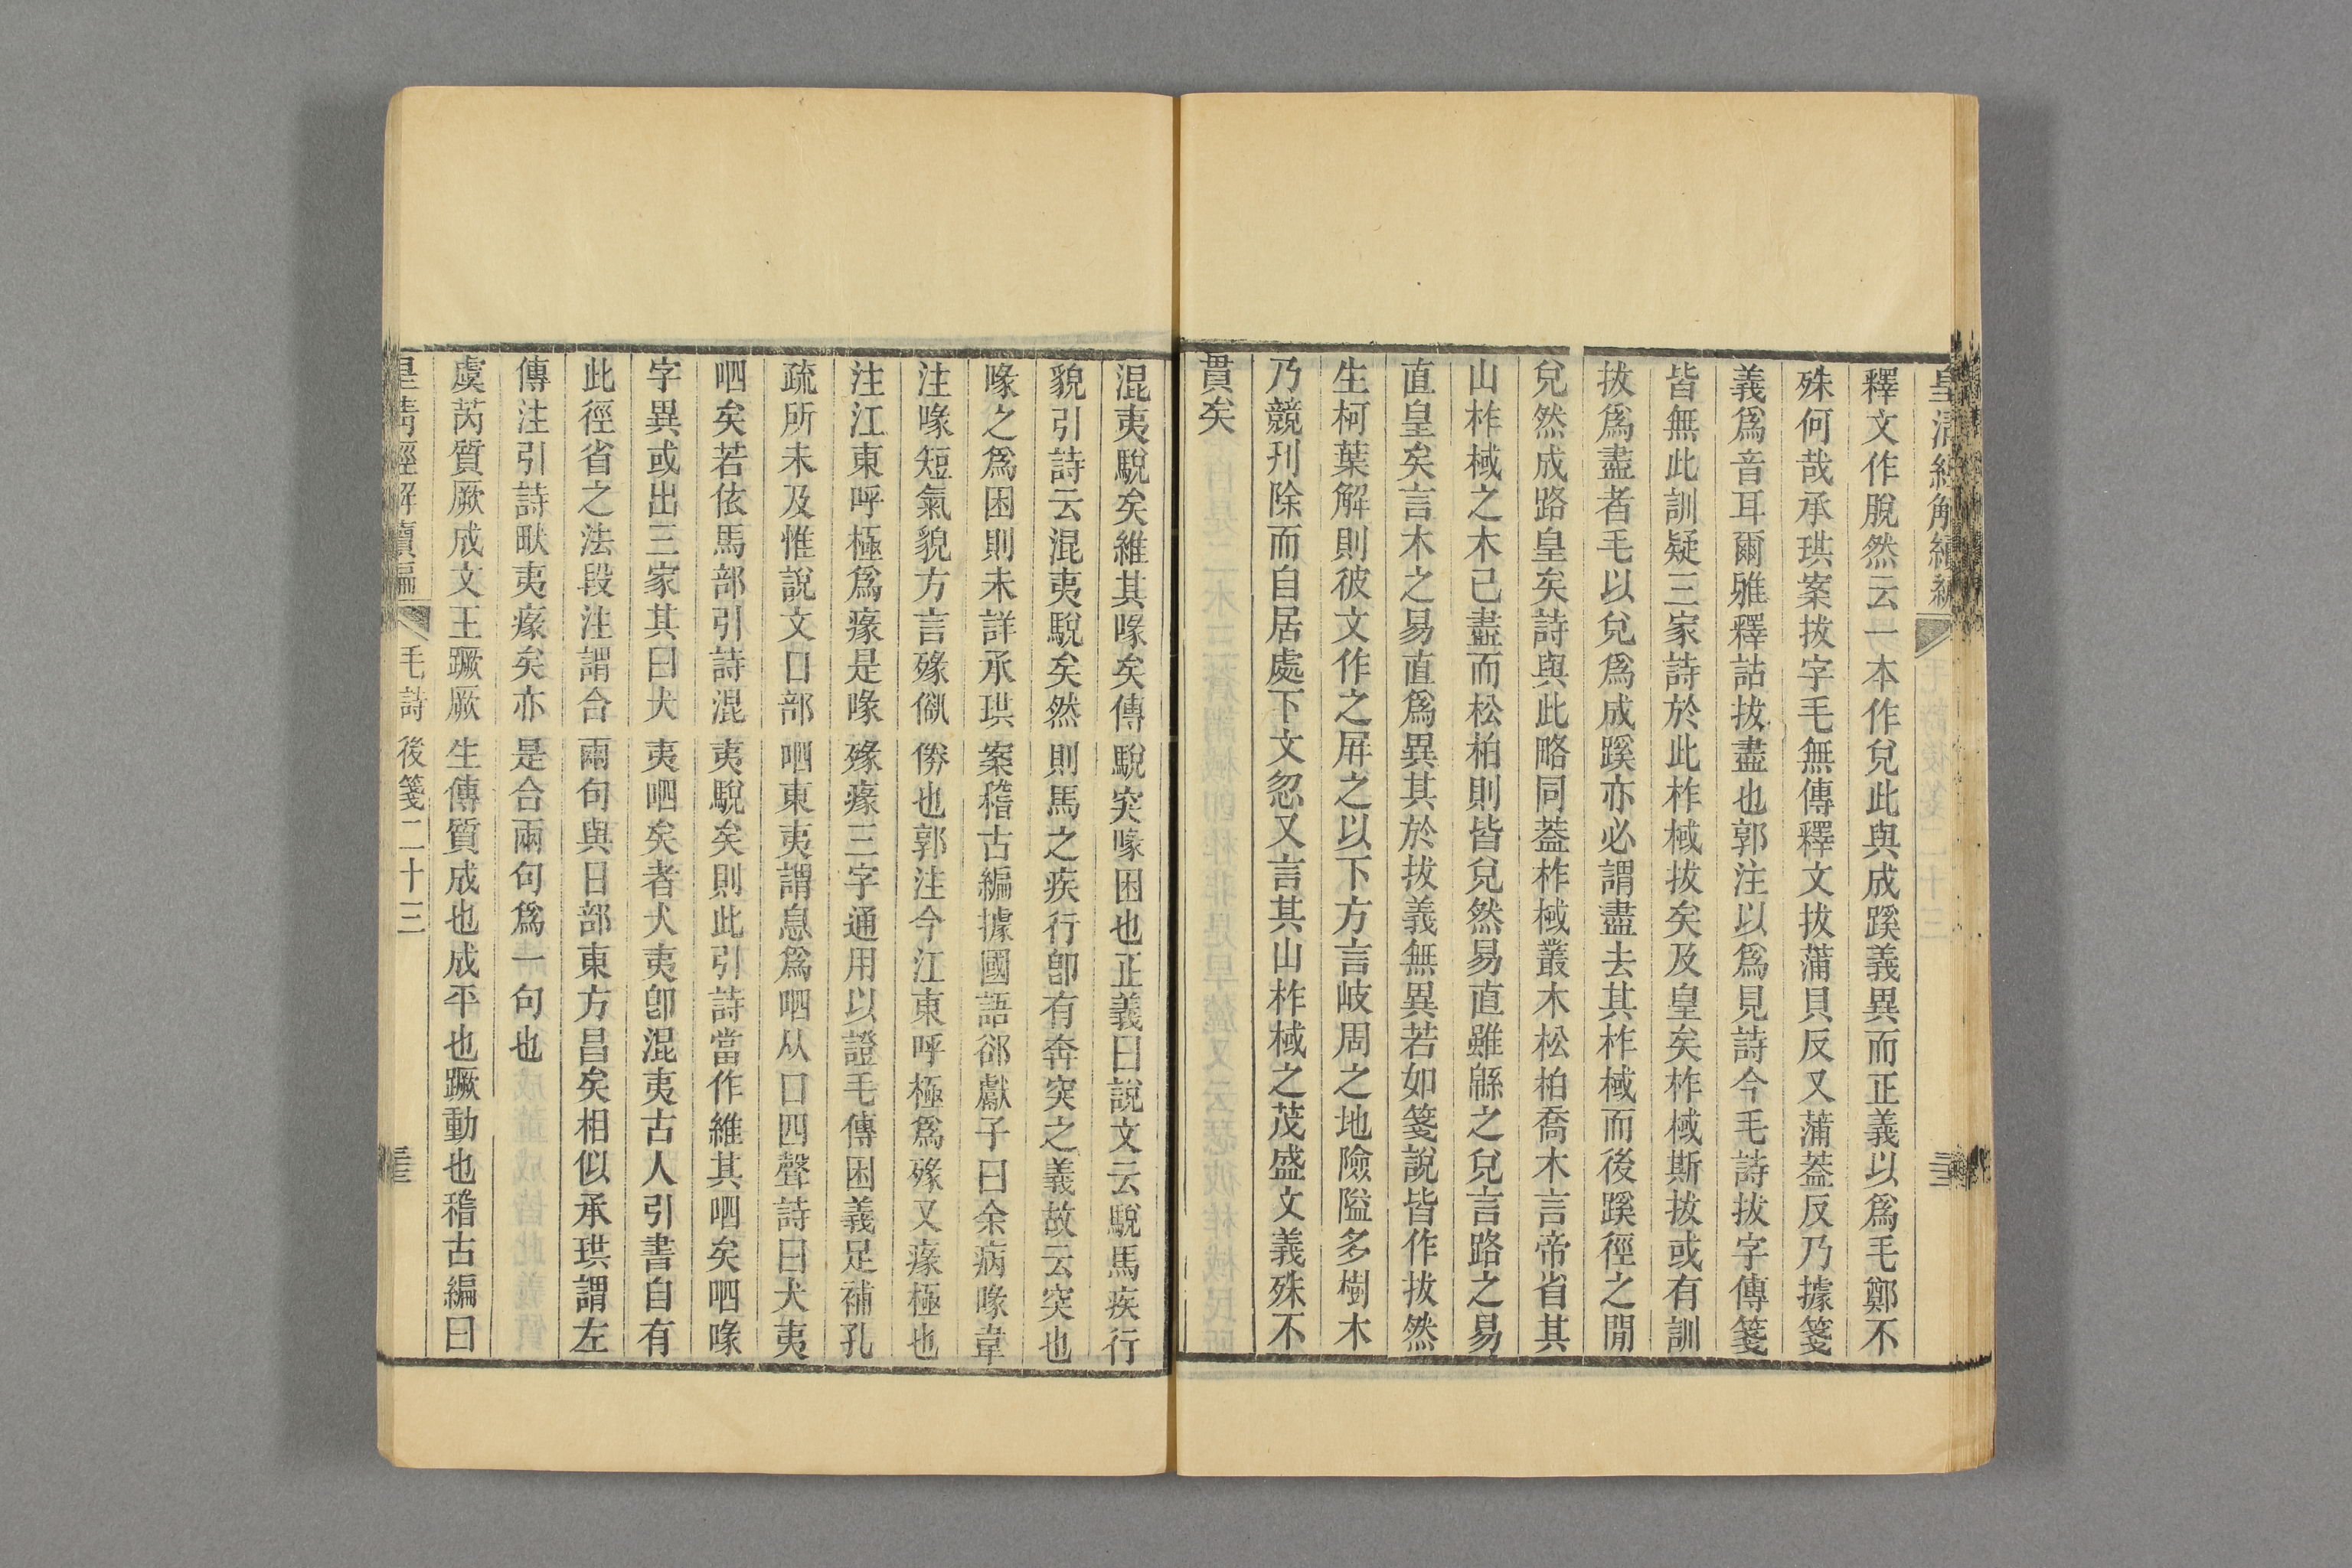 釋文作脫然云一本作兌此與成蹊義異而正義以爲毛鄭不
殊何哉承珙案拔字毛無傳釋文拔蒲貝反又蒲蓋反乃據箋
義爲音耳爾雅釋詁拔盡也郭注以爲見詩今毛詩拔字傳箋
皆無此訓疑三家詩於此柞棫拔矣及皇矣柞棫斯拔或有訓
拔爲盡者毛以兌爲成蹊亦必謂盡去其柞棫而後蹊徑之閒
兌然成路皇矣詩與此略同蓋柞棫叢木松柏喬木言帝省其
山柞棫之木已盡而松柏則皆兌然易直雖緜之兌言路之易
直皇矣言木之易直爲異其於拔義無異若如箋說皆作拔然
生柯葉解則彼文作之屛之以下方言岐周之地險隘多樹木
乃競刊除而自居處下文忽又言其山柞棫之茂盛文義殊不
貫矣
混夷駾矣維其喙矣傳駾突喙困也正義曰說文云駾馬疾行
貌引詩云混夷駾矣然則馬之疾行卽有奔突之義故云突也
喙之爲困則未詳承珙案稽古編據國語郤獻子曰余病喙韋
注喙短氣貌方言㱵㑸倦也郭注今江東呼極爲㱵又瘃極也
注江東呼極爲瘃是喙㱵瘃三字通用以證毛傳困義足補孔
疏所未及惟說文口部呬東夷謂息爲呬从口四聲詩曰犬夷
呬矣若依馬部引詩混夷駾矣則此引詩當作維其呬矣呬喙
字異或出三家其曰犬夷呬矣者犬夷卽混夷古人引書自有
此徑省之法段注謂合兩句與日部東方昌矣相似承珙謂左
傳注引詩畎夷瘃矣亦是合兩句爲一句也
虞芮質厥成文王蹶厥生傳質成也成平也蹶動也稽古編曰
皇淸經解續編 毛詩後箋二十三 三三